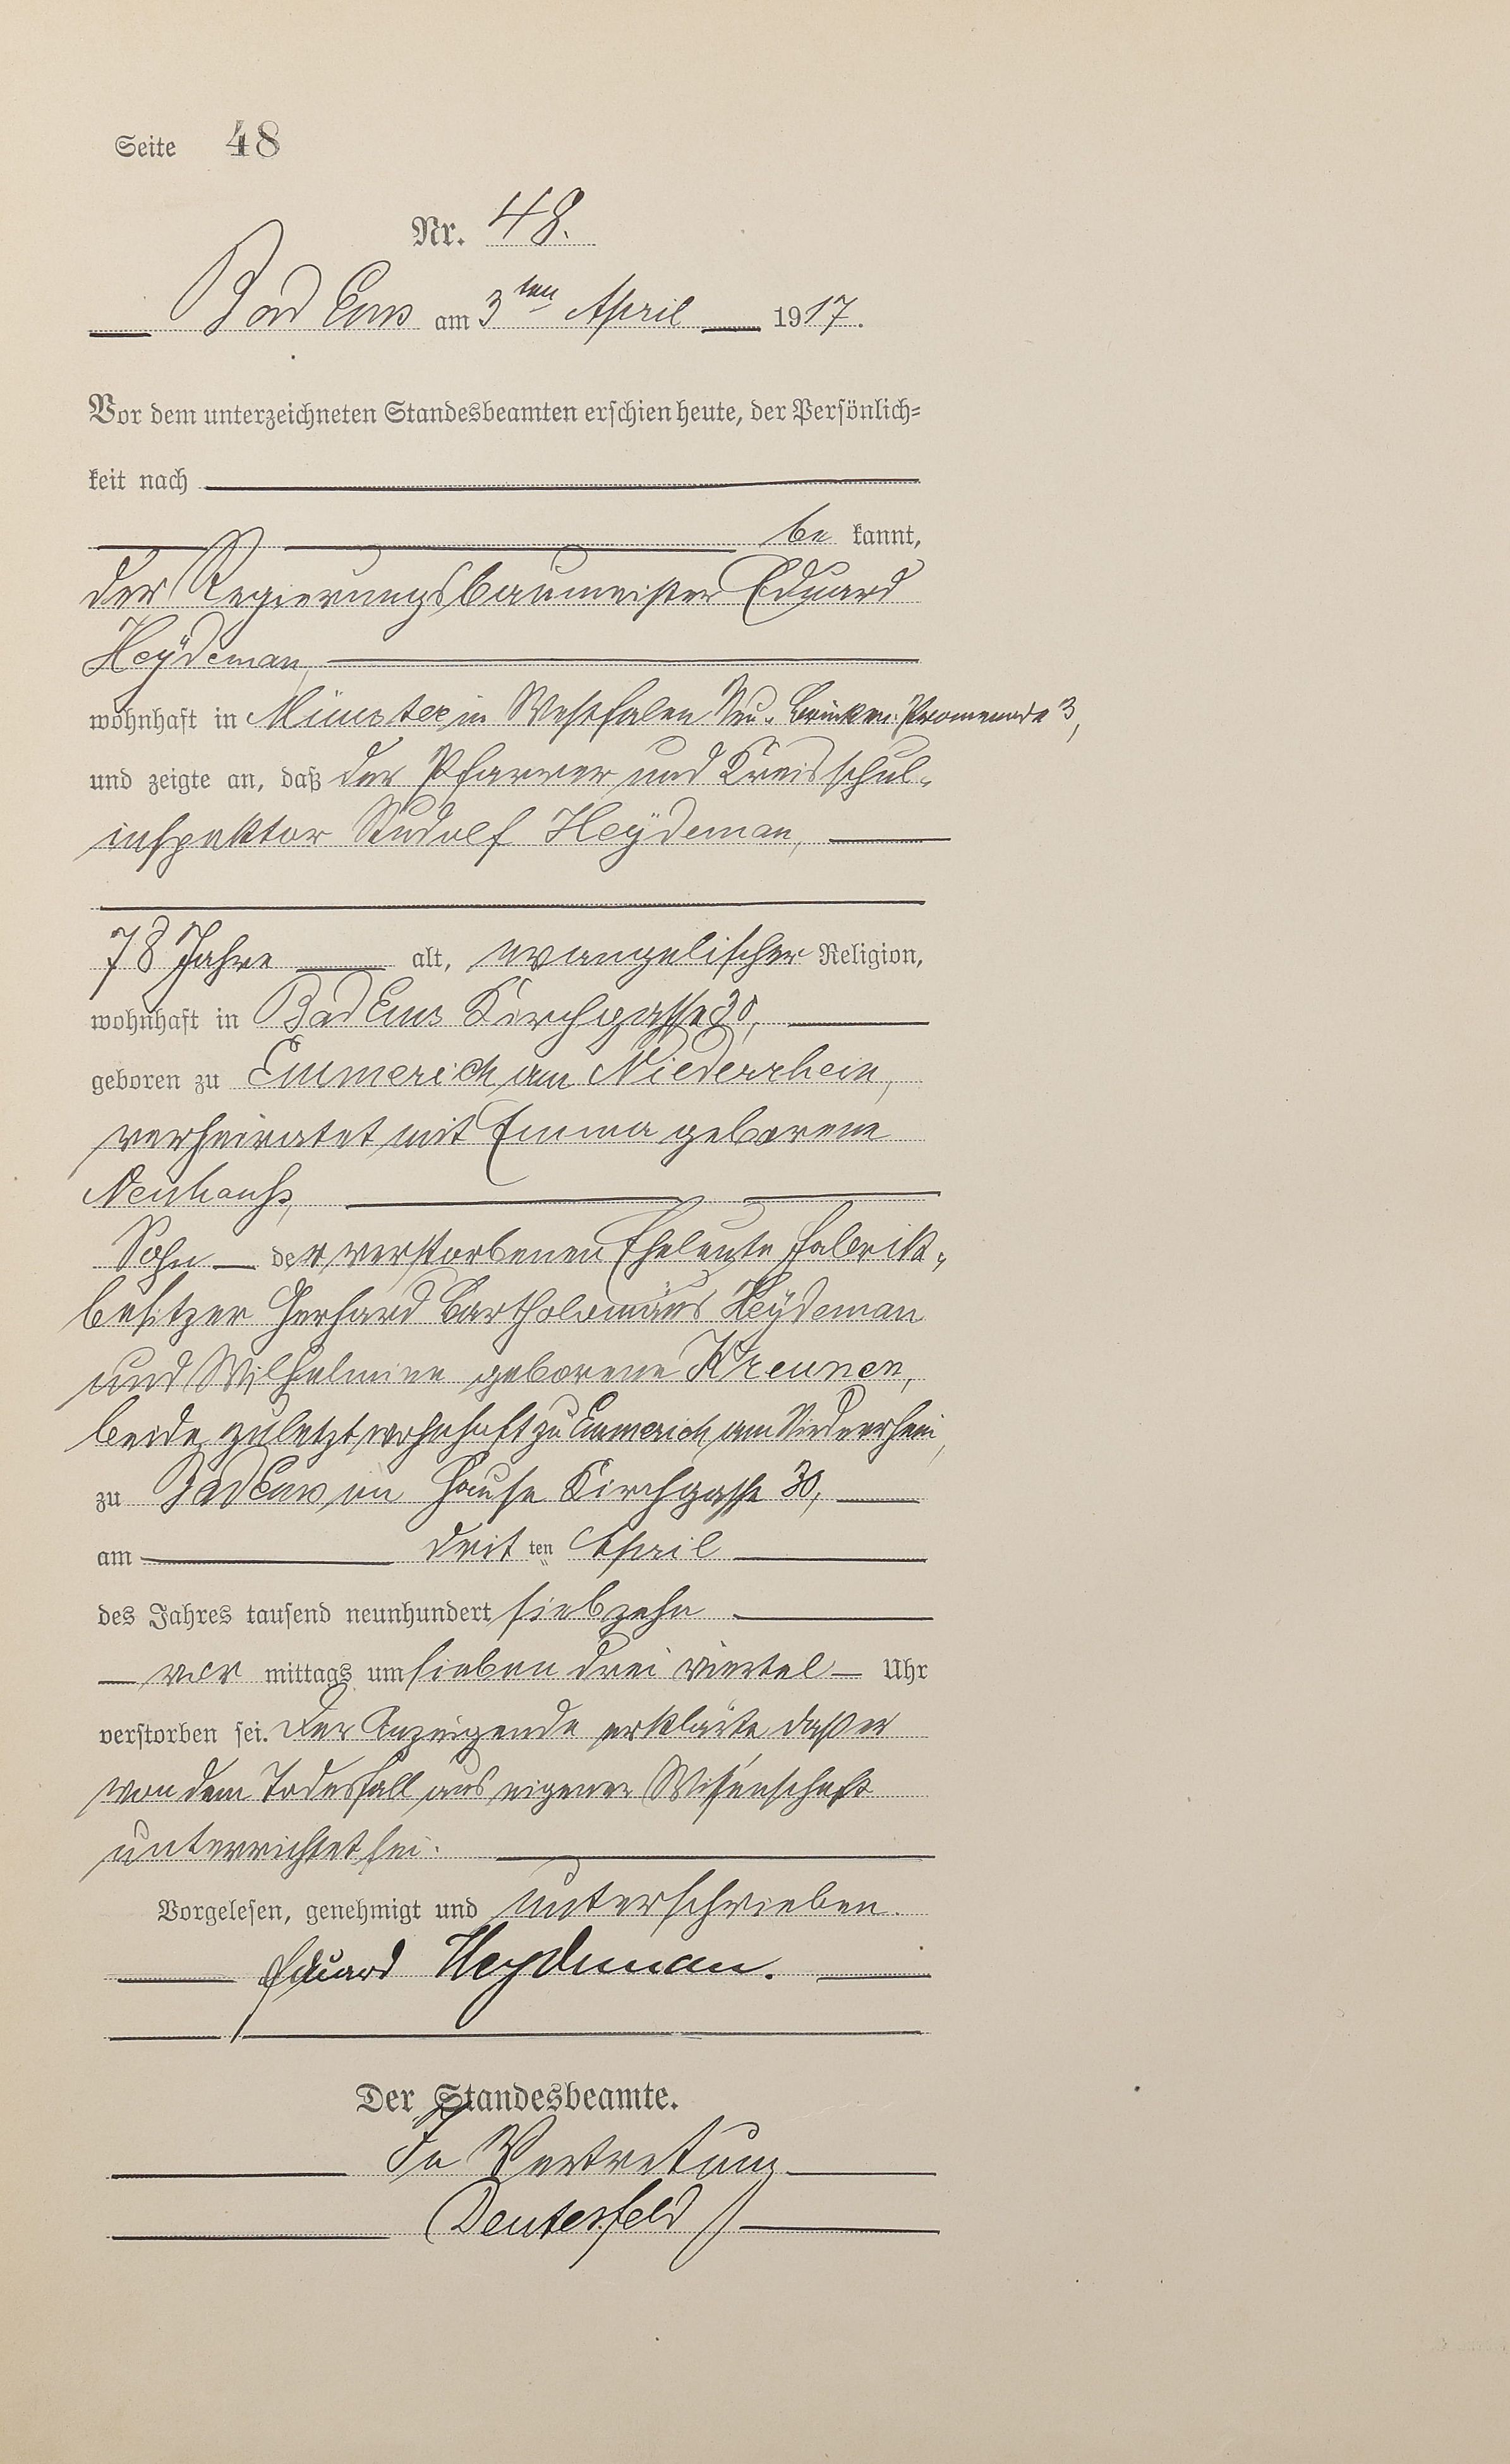 Seite 48
Nr. 48.
Bad Ems am 3ten April 1917.
Vor dem unterzeichneten Standesbeamten erschien heute, der Persönlich-
keit nach
be kannt,
der Regierungsbaumeister Eduard
Heÿdeman,
wohnhaft in Münster in Westfalen Neu-Brücken-Promenade 3,
und zeigte an, daß der Pfarrer und Kreisschul-
inspektor Rudolf Heÿdeman,
78 Jahre alt, evangelischer Religion,
wohnhaft in Bad Ems Kirchgasse 30,
geboren zu Emmerich am Niederrhein,
verheiratet mit Emma geborene
Neuhauß,
Sohn der verstorbenen Eheleute Fabrik-
besitzer Gerhard Bartholomäus Heÿdeman
und Wilhelmine geborene Kreunen,
beide zuletzt wohnhaft zu Emmerich am Niederrhein,
zu Bad Ems im Hause Kirchgasse 30,
am drit ten April
des Jahres tausend neunhundert siebzehn
vor mittags um sieben drei viertel Uhr
verstorben sei. Der Anzeigende erklärte daß er
von dem Todesfall aus eigener Wissenschaft
unterrichtet sei.
Vorgelesen, genehmigt und unterschrieben.
Eduard Heydeman.
Der Standesbeamte.
In Vertretung
Deutesfeld